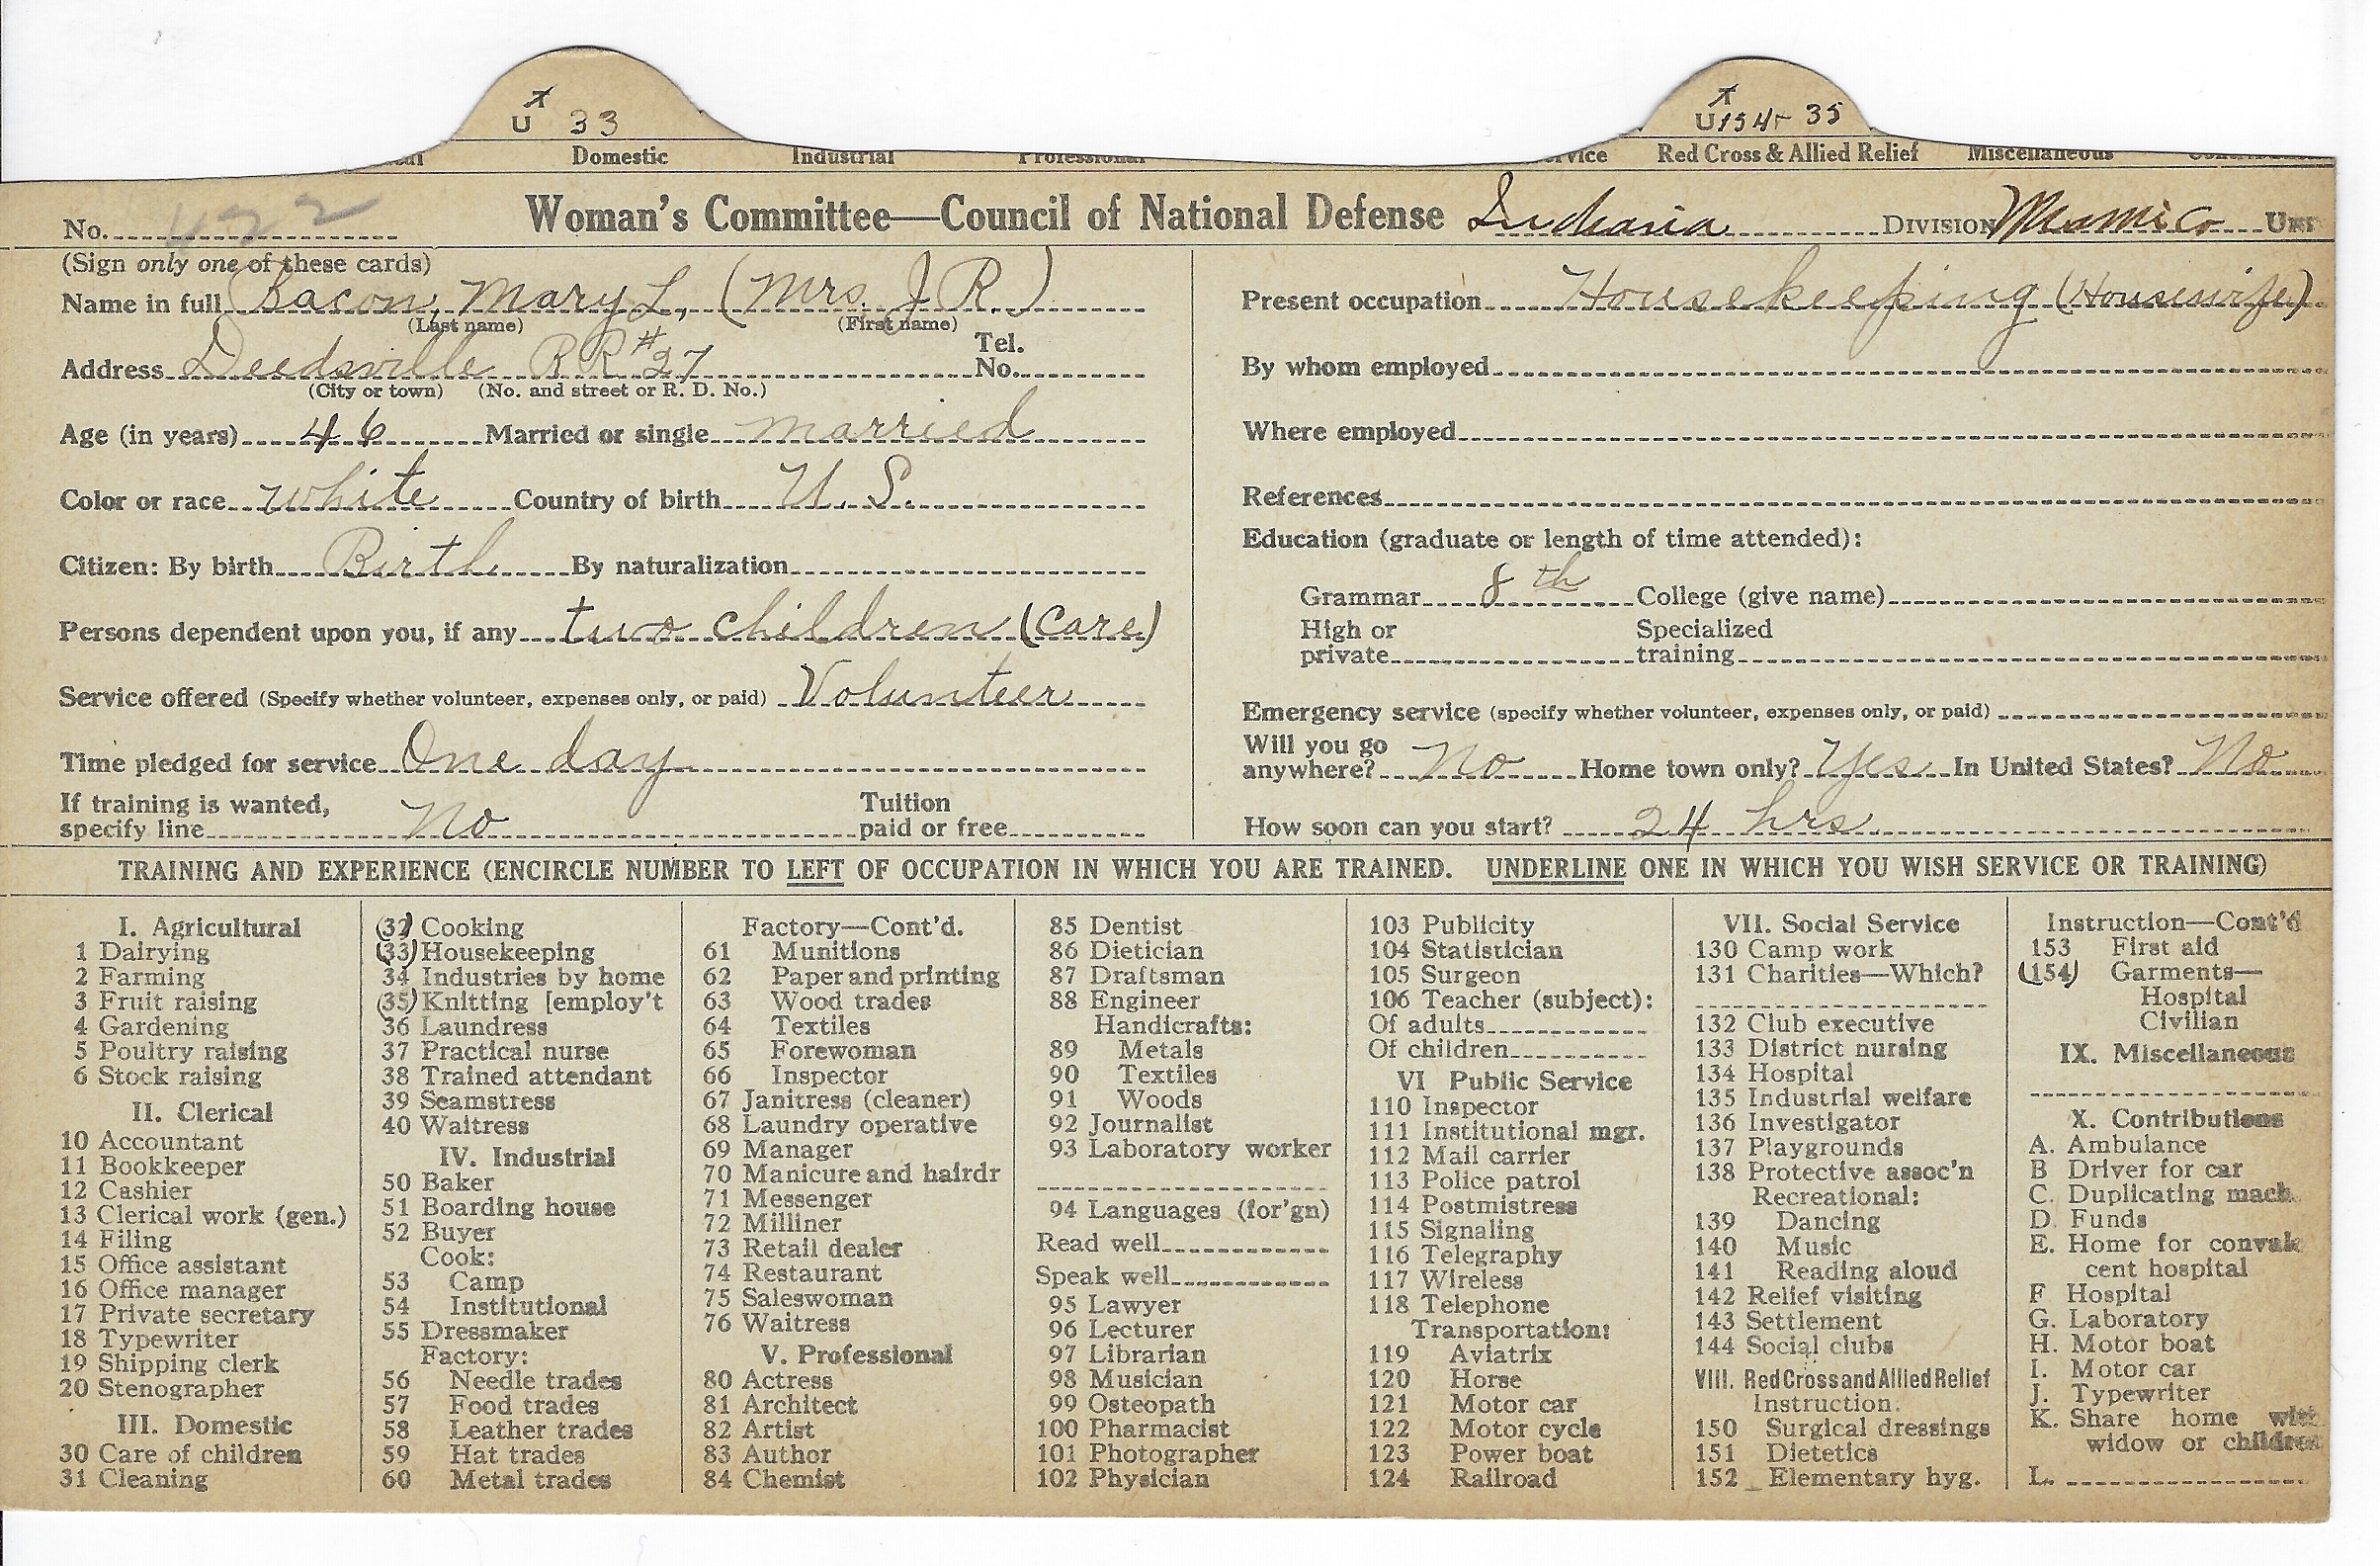 U 33
U 154 - 35
Domestic Industrial Professional Red Cross & Allied Relief Miscellaneous
No. 422 Woman's Committee—Council of National Defense Indiana DIVISION Miami Co
(Sign only one of these cards)
Name in full Bacon, Mary L, (Mrs. J. R.)
(Last name) (First name)
Address Deedsville R R #27 Tel. No.
(City or town) (No. and street or R. D. No.)
Age (in years) 46 Married or single married
Color or race white Country of birth U. S.
Citizen: By birth Birth By naturalization
Persons dependent upon you, if any two children (care)
Service offered (Specify whether volunteer, expenses only, or paid) Volunteer
Time pledged for service One day
If training is wanted, specify line No Tuition paid or free
Present occupation Housekeeping (Housewife)
By whom employed
Where employed
References
Education (graduate or length of time attended):
Grammar 8th College (give name)
High or private Specialized training
Emergency service (specify whether volunteer, expenses only, or paid)
Will you go anywhere? No Home town only? Yes In United States? No
How soon can you start? 24 hrs
TRAINING AND EXPERIENCE (ENCIRCLE NUMBER TO LEFT OF OCCUPATION IN WHICH YOU ARE TRAINED. UNDERLINE ONE IN WHICH YOU WISH SERVICE OR TRAINING)
I. Agricultural
1 Dairying
2 Farming
3 Fruit raising
4 Gardening
5 Poultry raising
6 Stock raising
II. Clerical
10 Accountant
11 Bookkeeper
12 Cashier
13 Clerical work (gen.)
14 Filing
15 Office assistant
16 Office manager
17 Private secretary
18 Typewriter
19 Shipping clerk
20 Stenographer
III. Domestic
30 Care of children
31 Cleaning
(32) Cooking
(33) Housekeeping
34 Industries by home
(35) Knitting [employ't
36 Laundress
37 Practical nurse
38 Trained attendant
39 Seamstress
40 Waitress
IV. Industrial
50 Baker
51 Boarding house
52 Buyer
Cook:
53 Camp
54 Institutional
55 Dressmaker
Factory:
56 Needle trades
57 Food trades
58 Leather trades
59 Hat trades
60 Metal trades
Factory—Cont'd.
61 Munitions
62 Paper and printing
63 Wood trades
64 Textiles
65 Forewoman
66 Inspector
67 Janitress (cleaner)
68 Laundry operative
69 Manager
70 Manicure and hairdr
71 Messenger
72 Milliner
73 Retail dealer
74 Restaurant
75 Saleswoman
76 Waitress
V. Professional
80 Actress
81 Architect
82 Artist
83 Author
84 Chemist
85 Dentist
86 Dietician
87 Draftsman
88 Engineer
Handicrafts:
89 Metals
90 Textiles
91 Woods
92 Journalist
93 Laboratory worker
94 Languages (for'gn)
Read well
Speak well
95 Lawyer
96 Lecturer
97 Librarian
98 Musician
99 Osteopath
100 Pharmacist
101 Photographer
102 Physician
103 Publicity
104 Statistician
105 Surgeon
106 Teacher (subject):
Of adults
Of children
VI Public Service
110 Inspector
111 Institutional mgr.
112 Mail carrier
113 Police patrol
114 Postmistress
115 Signaling
116 Telegraphy
117 Wireless
118 Telephone
Transportation:
119 Aviatrix
120 Horse
121 Motor car
122 Motor cycle
123 Power boat
124 Railroad
VII. Social Service
130 Camp work
131 Charities—Which?
132 Club executive
133 District nursing
134 Hospital
135 Industrial welfare
136 Investigator
137 Playgrounds
138 Protective assoc'n
Recreational:
139 Dancing
140 Music
141 Reading aloud
142 Relief visiting
143 Settlement
144 Social clubs
VIII. Red Cross and Allied Relief
Instruction:
150 Surgical dressings
151 Dietetics
152 Elementary hyg.
Instruction—Cont'd
153 First aid
(154) Garments—
Hospital
Civilian
IX. Miscellaneous
X. Contributions
A. Ambulance
B Driver for car
C. Duplicating mach.
D. Funds
E. Home for convales
cent hospital
F Hospital
G. Laboratory
H. Motor boat
I. Motor car
J. Typewriter
K. Share home with
widow or children
L.